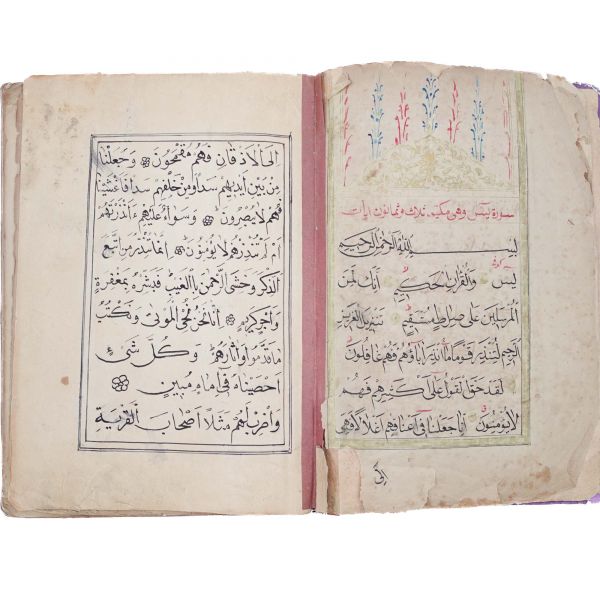 سورة يس وهى مكيه ثلاث وثمانون ايات
بسم الله الرحمن الرحيم
يس والقران الحكيم انك لمن
المرسلين على صراط مستقيم تنزيل العزيز
الرحيم لتنذر قوما ما انذر اباؤهم فهم غافلون
لقد حق القول على اكثرهم فهم
لا يؤمنون انا جعلنا فى اعناقهم اغلالا فهى
الى
الى الاذقان فهم مقمحون وجعلنا
من بين ايديهم سدا ومن خلفهم سدا فاغشينا
فهم لا يبصرون وسواء عليهم ءانذرتهم
ام لم تنذرهم لا يؤمنون انما تنذر من اتبع
الذكر وخشى الرحمن بالغيب فبشره بمغفرة
واجر كريم انا نحن نحى الموتى ونكتب
ما قدموا واثارهم وكل شىء
احصيناه فى امام مبين
واضرب لهم مثلا اصحاب القرية